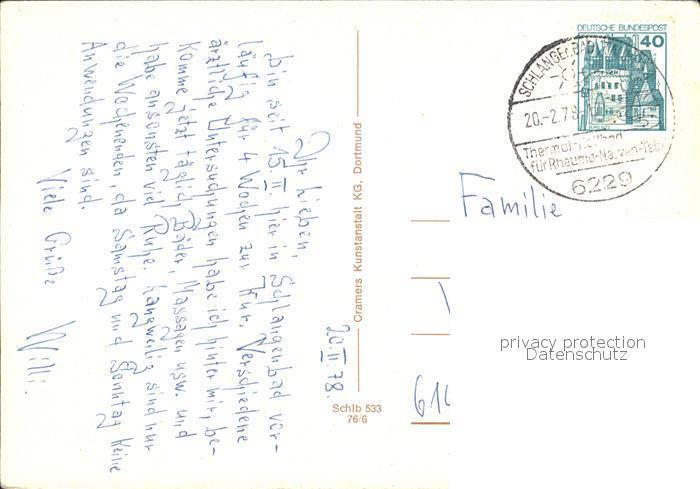 20.II.78.
Ihr Lieben,
bin seit 15.II. hier in Schlangenbad vor-
läufig für 4 Wochen zur Kur. Verschiedene
ärztliche Untersuchungen habe ich hinter mir, be-
komme jetzt täglich Bäder, Massagen usw. und
habe ansonsten viel Ruhe. Langweilig sind nur
die Wochenenden, da Samstag und Sonntag keine
Anwendungen sind.
Viele Grüße
Willi.
Cramers Kunstanstalt KG, Dortmund
Schlb 533
76/6
DEUTSCHE BUNDESPOST
40
SCHLANGENBAD
20.-2.78
Thermal-
für Rheuma-Nerven-
6229
Familie
privacy protection
Datenschutz
61